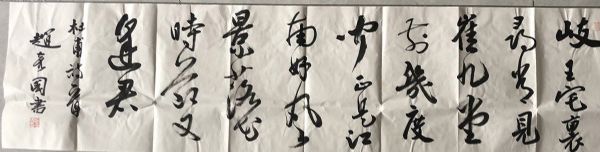 歧王宅裏
尋常見
崔九堂
前幾度
聞正是江
南好风
景落花
時节又
逢君
杜甫詩一首
趙國書